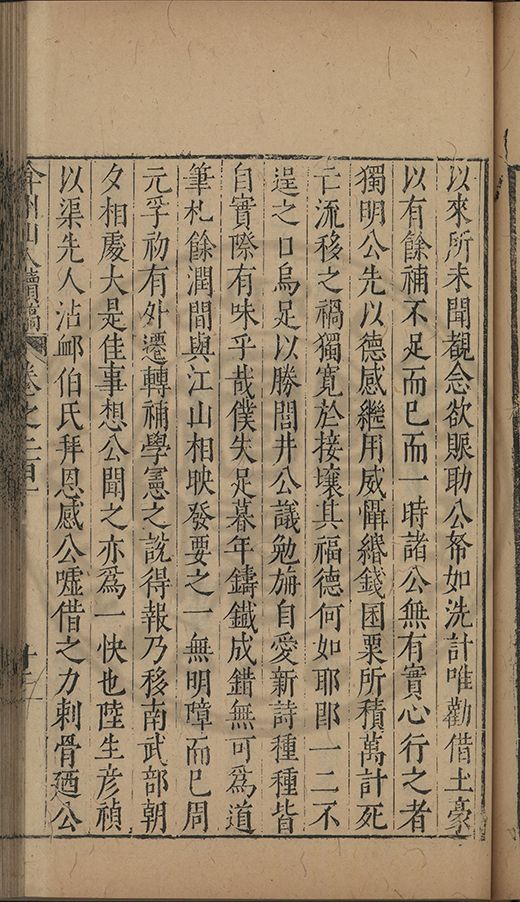 以來所未聞覩念欲賑助公帑如洗計唯勸借土豪
以有餘補不足而已而一時諸公無有實心行之者
獨明公先以德感繼用威懾緡錢囷粟所積萬計死
亡流移之禍獨寬於接壤其福德何如耶卽一二不
逞之口烏足以勝閭井公議勉旃自愛新詩種種皆
自實際有味乎哉僕失足暮年鑄鐵成錯無可爲道
筆札餘潤間與江山相映發要之一無明障而已周
元孚初有外遷轉補學憲之說得報乃移南武部朝
夕相處大是佳事想公聞之亦爲一快也陸生彦禎
以渠先人沾䘏伯氏拜恩感公噓借之力刺骨廼公
弇州山人續稿 卷之二百一